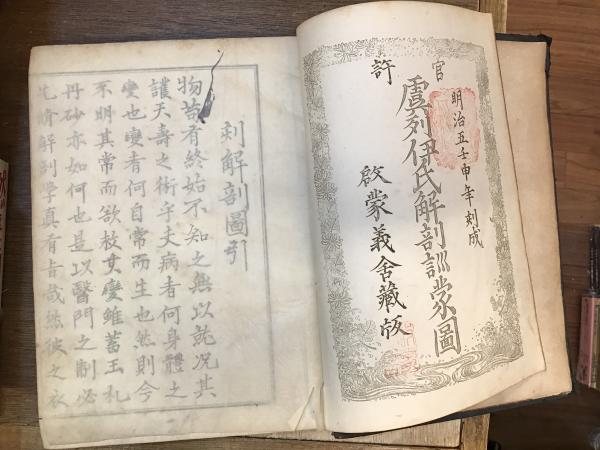 官許
明治五壬申年刻成
虞列伊氏解剖訓蒙圖
啟蒙義舍藏版
刺解剖圖引
物苟有終始不知之無以就況其
護天壽之術乎夫病者何身體之
變也變者何自常而生也然則今
不明其常而欲救其變雖蓄玉札
丹砂亦如何也是以醫門之制必
先解剖學真有旨哉然彼之衣